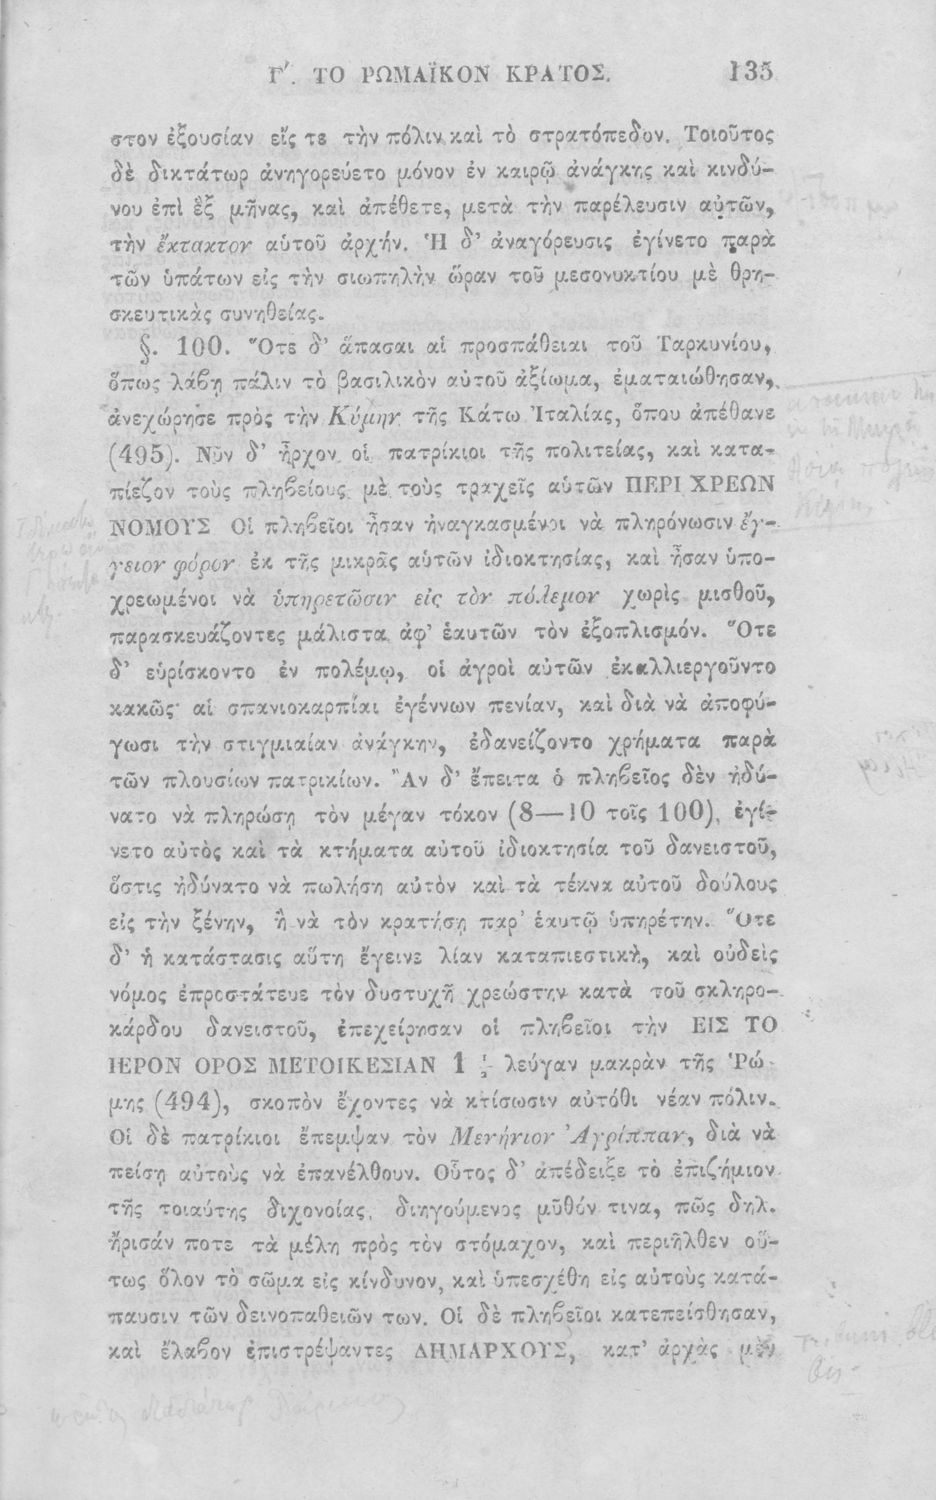 Γ΄. ΤΟ ΡΩΜΑΪΚΟΝ ΚΡΑΤΟΣ. 135
στον ἐξουσίαν εἴς τε τὴν πόλιν καὶ τὸ στρατόπεδον. Τοιοῦτος
δὲ δικτάτωρ ἀνηγορεύετο μόνον ἐν καιρῷ ἀνάγκης καὶ κινδύ-
νου ἐπὶ ἓξ μῆνας, καὶ ἀπέθετε, μετὰ τὴν παρέλευσιν αὐτῶν,
τὴν ἔκτακτον αὑτοῦ ἀρχήν. Ἡ δ' ἀναγόρευσις ἐγίνετο παρὰ
τῶν ὑπάτων εἰς τὴν σιωπηλὴν ὥραν τοῦ μεσονυκτίου μὲ θρη-
σκευτικὰς συνηθείας.
§. 100. Ὅτε δ' ἅπασαι αἱ προσπάθειαι τοῦ Ταρκυνίου,
ὅπως λάβῃ πάλιν τὸ βασιλικὸν αὑτοῦ ἀξίωμα, ἐματαιώθησαν,
ἀνεχώρησε πρὸς τὴν Κύμην τῆς Κάτω Ἰταλίας, ὅπου ἀπέθανε
(495). Νῦν δ' ἦρχον οἱ πατρίκιοι τῆς πολιτείας, καὶ κατα-
πίεζον τοὺς πληβείους μὲ τοὺς τραχεῖς αὑτῶν ΠΕΡΙ ΧΡΕΩΝ
ΝΟΜΟΥΣ Οἱ πληβεῖοι ἦσαν ἠναγκασμένοι νὰ πληρόνωσιν ἔγ-
γειον φόρον ἐκ τῆς μικρᾶς αὑτῶν ἰδιοκτησίας, καὶ ἦσαν ὑπο-
χρεωμένοι νὰ ὑπηρετῶσιν εἰς τὸν πόλεμον χωρὶς μισθοῦ,
παρασκευάζοντες μάλιστα ἀφ' ἑαυτῶν τὸν ἐξοπλισμόν. Ὅτε
δ' εὑρίσκοντο ἐν πολέμῳ, οἱ ἀγροὶ αὐτῶν ἐκαλλιεργοῦντο
κακῶς· αἱ σπανιοκαρπίαι ἐγέννων πενίαν, καὶ διὰ νὰ ἀποφύ-
γωσι τὴν στιγμιαίαν ἀνάγκην, ἐδανείζοντο χρήματα παρὰ
τῶν πλουσίων πατρικίων. Ἂν δ' ἔπειτα ὁ πληβεῖος δὲν ἠδύ-
νατο νὰ πληρώσῃ τὸν μέγαν τόκον (8—10 τοῖς 100), ἐγί-
νετο αὐτὸς καὶ τὰ κτήματα αὐτοῦ ἰδιοκτησία τοῦ δανειστοῦ,
ὅστις ἠδύνατο νὰ πωλήσῃ αὐτὸν καὶ τὰ τέκνα αὐτοῦ δούλους
εἰς τὴν ξένην, ἢ νὰ τὸν κρατήσῃ παρ' ἑαυτῷ ὑπηρέτην. Ὅτε
δ' ἡ κατάστασις αὕτη ἔγεινε λίαν καταπιεστικὴ, καὶ οὐδεὶς
νόμος ἐπροστάτευε τὸν δυστυχῆ χρεώστην κατὰ τοῦ σκληρο-
κάρδου δανειστοῦ, ἐπεχείρησαν οἱ πληβεῖοι τὴν ΕΙΣ ΤΟ
ΙΕΡΟΝ ΟΡΟΣ ΜΕΤΟΙΚΕΣΙΑΝ 1 ½ λεύγαν μακρὰν τῆς Ῥώ-
μης (494), σκοπὸν ἔχοντες νὰ κτίσωσιν αὐτόθι νέαν πόλιν.
Οἱ δὲ πατρίκιοι ἔπεμψαν τὸν Μενήνιον Ἀγρίππαν, διὰ νὰ
πείσῃ αὐτοὺς νὰ ἐπανέλθουν. Οὗτος δ' ἀπέδειξε τὸ ἐπιζήμιον
τῆς τοιαύτης διχονοίας, διηγούμενος μῦθόν τινα, πῶς δηλ.
ἤρισάν ποτε τὰ μέλη πρὸς τὸν στόμαχον, καὶ περιῆλθεν οὕ-
τως ὅλον τὸ σῶμα εἰς κίνδυνον, καὶ ὑπεσχέθη εἰς αὐτοὺς κατά-
παυσιν τῶν δεινοπαθειῶν των. Οἱ δὲ πληβεῖοι κατεπείσθησαν,
καὶ ἔλαβον ἐπιστρέψαντες ΔΗΜΑΡΧΟΥΣ, κατ' ἀρχὰς μὲν